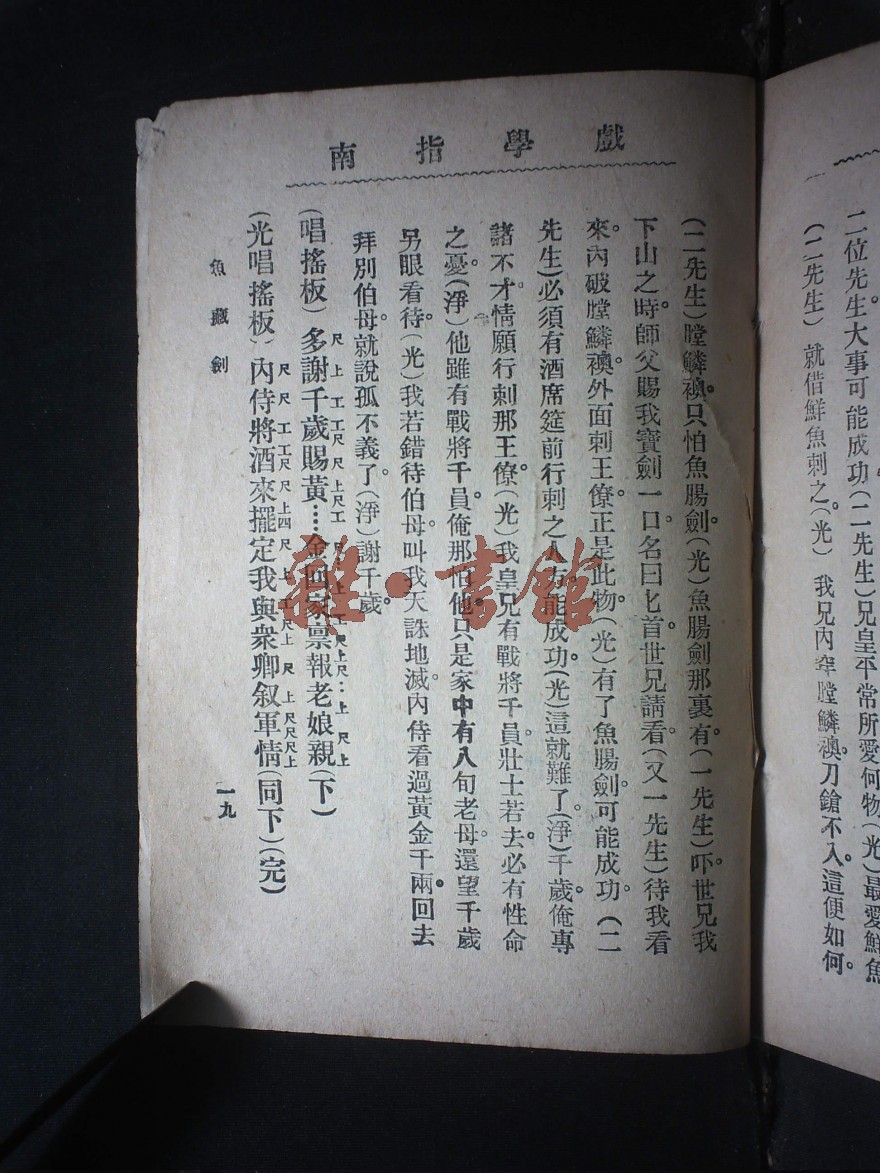 二位先生大事可能成功(二先生)兄皇平常所愛何物(光)最愛鮮魚
(二先生)就借鮮魚刺之。(光)我兄內穿膛鱗襖。刀鎗不入。這便如何。
戲學指南
(二先生)膛鱗襖。只怕魚腸劍。(光)魚腸劍那裏有(一先生)吓世兄我
下山之時。師父賜我寶劍一口名曰匕首。世兄請看。(又一先生)待我看
來。內破膛鱗襖。外面刺王僚。正是此物。(光)有了魚腸劍。可能成功。(二
先生)必須有酒席筵前行刺之人方能成功。(光)這就難了。(淨)千歲俺專
諸不才。情願行刺那王僚(光)我皇兄有戰將千員。壯士若去。必有性命
之憂。(淨)他雖有戰將千員。俺那怕他。只是家中有八旬老母。還望千歲
另眼看待。(光)我若錯待伯母。叫我天誅地滅。內侍看過黃金千兩。回去
拜別伯母。就說孤不義了。(淨)謝千歲。
(唱搖板)多謝千歲賜黃……金回家禀報老娘親(下)
(光唱搖板)內侍將酒來擺定我與衆卿叙軍情(同下)(完)
魚藏劍
一九
雜·書館